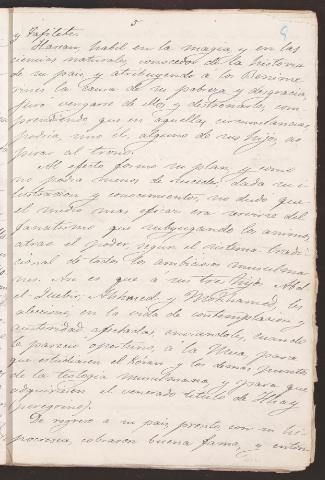 5
y Tafilete.
Hassan, habil en la magia y en las
ciencias naturales, conocedor de la historia
de su pais y atribuyendo a los Benime-
rines la causa de su pobreza y desgracia,
juro vengarse de ellos y destronarlos, com-
prendiendo que en aquellas circunstancias
podria, sino el, alguno de sus hijos as-
pirar al trono.
Al efecto, formo su plan, y como
no podia menos de suceder dada su i-
lustracion y conocimientos, no dudo que
el medio mas eficaz era servirse del
fanatismo que subyugando los animos,
atrae el poder, segun el sistema tradi-
cional de todos los ambiciosos musulma-
nes. Asi es que á sus tres hijos Abd-
el-Quebir, Ahhamed y Mohhamed, les
aleciono en la vida de contemplacion y
austeridad afectadas enviandoles, cuando
le parecio oportuno, á la Meca, para
que estudiasen el Koran y las demas fuentes
de la teologia musulmana, y para que
adquirieran el venerado titulo de Hhay
(peregrino).
De regreso a su pais, pronto, con su hi-
pocresia, cobraron buena fama, y enton